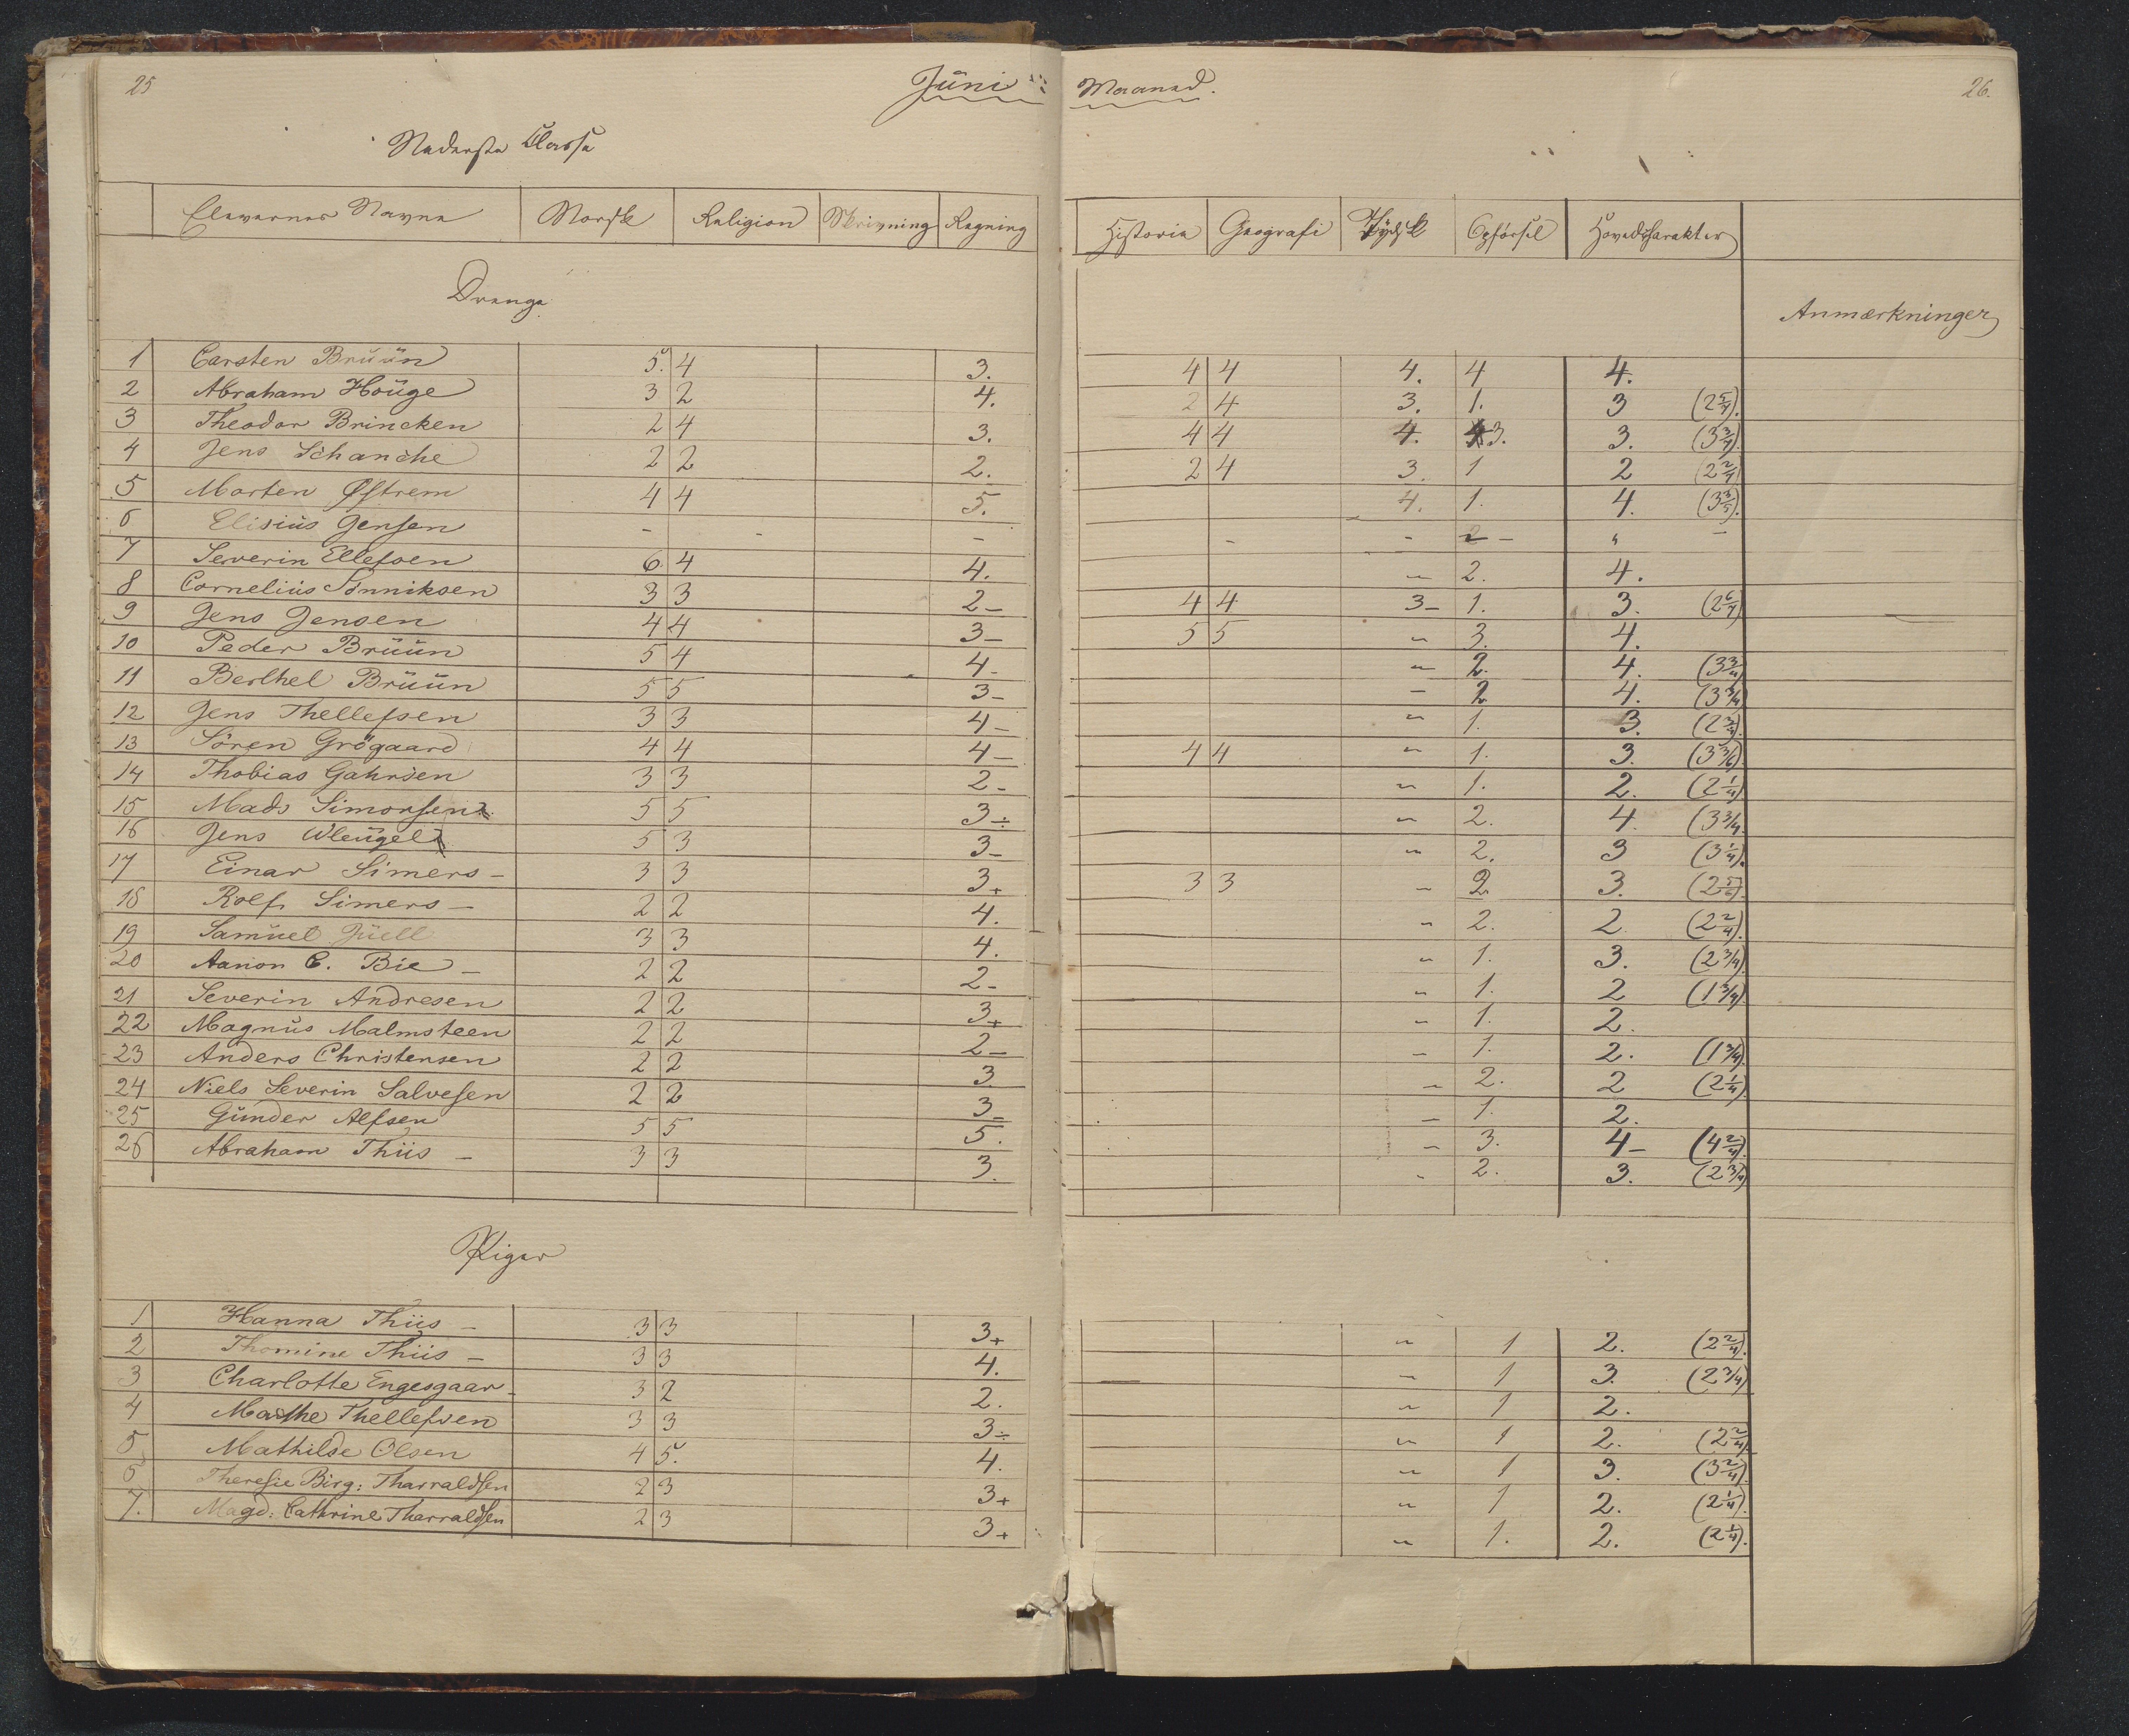 25 Juni Maaned. 26.
Nederste Classe
Elevernes Navne Norsk Religion Skrivning Regning Historie Geografi Tydsk Opførsel Hovedcharakter
Drenge
Anmærkninger
1 Carsten Bruun 5. 4 3. 4 4 4. 4 4.
2 Abraham Houge 3 2 4. 2 4 3. 1. 3 (2 5/7).
3 Theodor Brincken 2 4 3. 4 4 4. 3. 3. (3 3/7).
4 Jens Schanche 2 2 2. 2 4 3. 1 2 (2 2/7)
5 Morten Østrem 4 4 5. 4. 1. 4. (3 3/5).
6 Elisius Jensen - - - - - 2 - " -
7 Severin Ellefsen 6 4 4. " 2. 4.
8 Cornelius Sønniksen 3 3 2- 4 4 3- 1. 3. (2 6/7)
9 Jens Jensen 4 4 3- 5 5 " 3. 4.
10 Peder Bruun 5 4 4- " 2. 4. (3 3/4)
11 Berthel Bruun 5 5 3- - 2 4. (3 3/4)
12 Jens Thellefsen 3 3 4- " 1. 3. (2 3/4).
13 Sören Grögaard 4 4 4- 4 4 " 1. 3. (3 3/6)
14 Thobias Gahrsen 3 3 2- " 1. 2. (2 1/4)
15 Mads Simonsen 5 5 3÷ " 2. 4. (3 3/4
16 Jens Wleugel 5 3 3- " 2. 3 (3 1/4).
17 Einar Simers- 3 3 3+ 3 3 " 2. 3. (2 5/6).
18 Rolf Simers- 2 2 4. " 2. 2 (2 2/4).
19 Samuel Juell 3 3 4. " 1. 3. (2 3/4).
20 Aanon C. Bie- 2 2 2- " 1. 2 (1 3/4).
21 Severin Andresen 2 2 3+ " 1. 2.
22 Magnus Malmsteen 2 2 2- " 1. 2. (1 3/4).
23 Anders Christensen 2 2 3 " 2. 2 (2 1/4).
24 Niels Severin Salvesen 2 2 3- - 1. 2.
25 Gunder Alfsen 5 5 5. " 3. 4- (4 2/4).
26 Abraham Thiis- 3 3 3. " 2. 3. (2 3/4)
Piger
1 Hanna Thiis- 3 3 3+ " 1 2. (2 2/4).
2 Thomine Thiis- 3 3 4. " 1 3. (2 3/4)
3 Charlotte Engesgaar- 3 2 2. " 1 2.
4 Marthe Thellefsen 3 3 3÷ " 1 2. (2 2/4)
5 Mathilde Olsen 4 5. 4. " 1 3. (3 2/4).
6 Theresie Birg: Tharraldsen 2 3 3+ " 1 2. (2 1/4).
7. Magd: Cathrine Tharraldsen 2 3 3+ " 1. 2. (2 1/4).